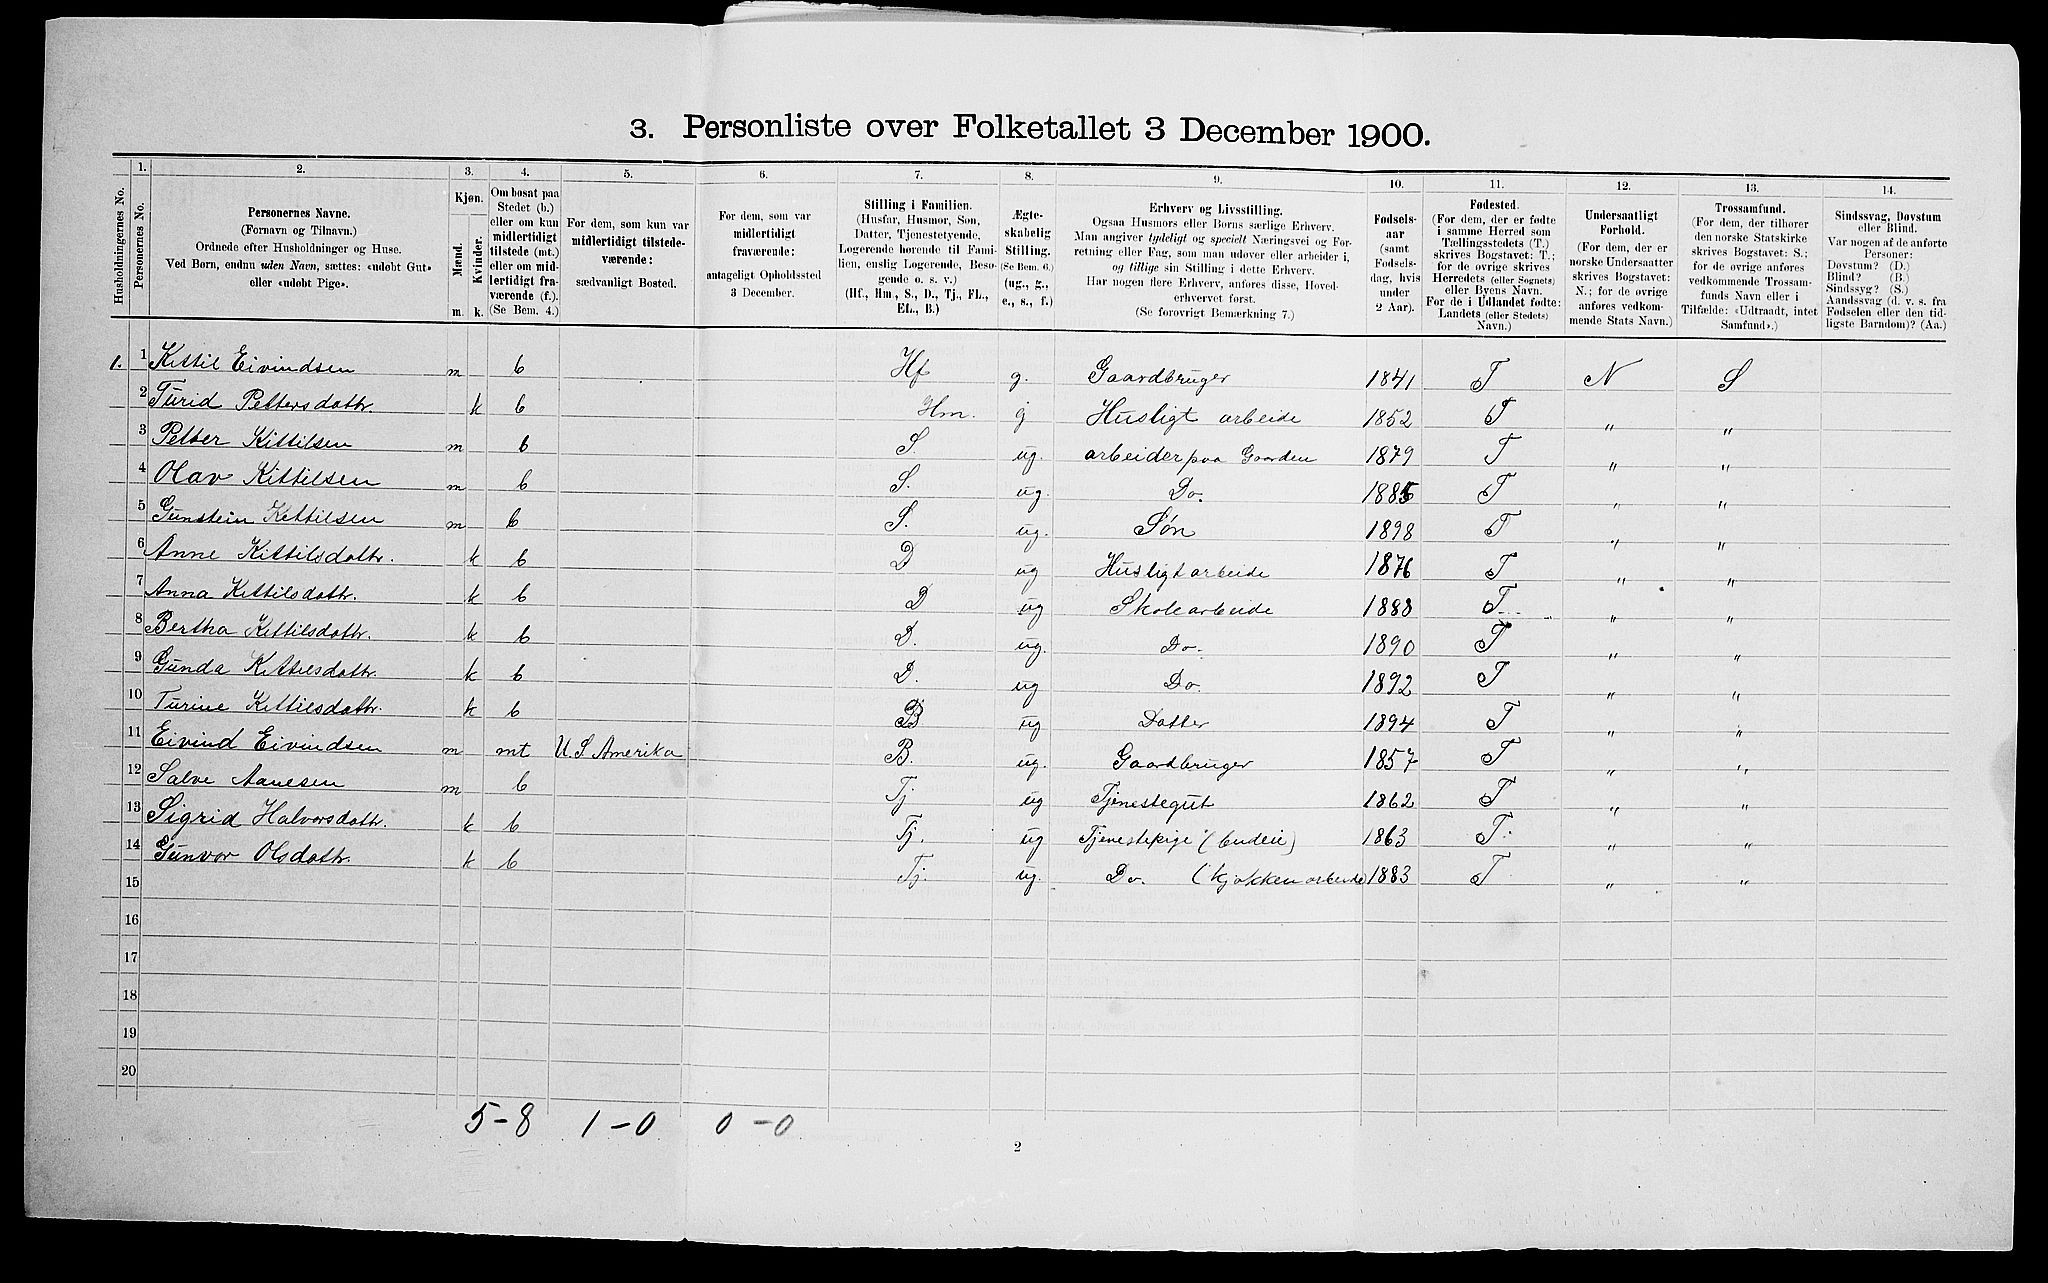 3. Personliste over Folketallet 3 December 1900.
Husholdningernes No.
1. Personernes No.
2. Personernes Navne.
(Fornavn og Tilnavn.)
Ordnede efter Husholdninger og Huse.
Ved Børn, endnu uden Navn, sættes: «udøbt Gut»
eller «udøbt Pige».
3. Kjøn.
Mænd. Kvinder.
m. k.
4. Om bosat paa
Stedet (b.)
eller om kun
midlertidigt
tilstede (mt.)
eller om mid-
lertidigt fra-
værende (f.).
(Se Bem. 4.)
5. For dem, som kun var
midlertidigt tilstede-
værende:
sædvanligt Bosted.
6. For dem, som var
midlertidigt
fraværende:
antageligt Opholdssted
3 December.
7. Stilling i Familien.
(Husfar, Husmor, Søn,
Datter, Tjenestetyende,
Logerende hørende til Fami-
lien, enslig Logerende, Besø-
gende o. s. v.)
(Hf., Hm., S., D., Tj., FL.,
EL., B.)
8. Ægte-
skabelig
Stilling.
(Se Bem. 6.)
(ug., g.,
e., s., f.)
9. Erhverv og Livsstilling.
Ogsaa Husmors eller Børns særlige Erhverv.
Man angiver tydeligt og specielt Næringsvei og For-
retning eller Fag, som man udøver eller arbeider i,
og tillige sin Stilling i dette Erhverv.
Har nogen flere Erhverv, anføres disse, Hoved-
erhvervet først.
(Se forøvrigt Bemærkning 7.)
10. Fødsels-
aar
(samt
Fødsels-
dag, hvis
under
2 Aar).
11. Fødested.
(For dem, der er fødte
i samme Herred som
Tællingsstedets (T.)
skrives Bogstavet: T.;
for de øvrige skrives
Herredets (eller Sognets)
eller Byens Navn.
For de i Udlandet fødte:
Landets (eller Stedets)
Navn.)
12. Undersaatligt
Forhold.
(For dem, der er
norske Undersaatter
skrives Bogstavet:
N.; for de øvrige
anføres vedkom-
mende Stats Navn.)
13. Trossamfund.
(For dem, der tilhører
den norske Statskirke
skrives Bogstavet: S.;
for de øvrige anføres
vedkommende Trossam-
funds Navn eller i
Tilfælde: «Udtraadt, intet
Samfund».)
14. Sindssvag, Døvstum
eller Blind.
Var nogen af de anførte
Personer:
Døvstum? (D.)
Blind? (B.)
Sindssyg? (S.)
Aandssvag (d. v. s. fra
Fødselen eller den tid-
ligste Barndom)? (Aa.)
1. 1 Kittil Eivindsen m b Hf g. Gaardbruger 1841 T N S
2 Turid Pettersdattr. k b Hm. g Husligt arbeide 1852 T " "
3 Petter Kittilsen m b S. ug. arbeider paa Gaarden 1879 T " "
4 Olav Kittilsen m b S. ug. Do. 1885 T " "
5 Gunstein Kittilsen m b S. ug. Søn 1898 T " "
6 Anne Kittilsdattr. k b D ug Husligt arbeide 1876 T " "
7 Anna Kittilsdattr. k b D ug Skolearbeide 1888 T " "
8 Bertha Kittilsdattr. k b D. ug. Do. 1890 T " "
9 Gunda Kittilsdattr. k b D. ug Do. 1892 T " "
10 Turine Kittilsdattr. k b ug Datter 1894 T " "
11 Eivind Eivindsen m mt U. S. Amerika B. ug. Gaardbruger 1857 T " "
12 Salve Aanesen m b Tj ug Tjenestegut 1862 T " "
13 Sigrid Halvorsdattr. k b Tj. ug Tjenestepige (budeie) 1863 T. " "
14 Gunvor Olsdattr. k b Tj. ug. Do. (kjøkkenarbeide) 1883 T " "
15
16
17
18
19
20
5-8 1-0 0-0
2